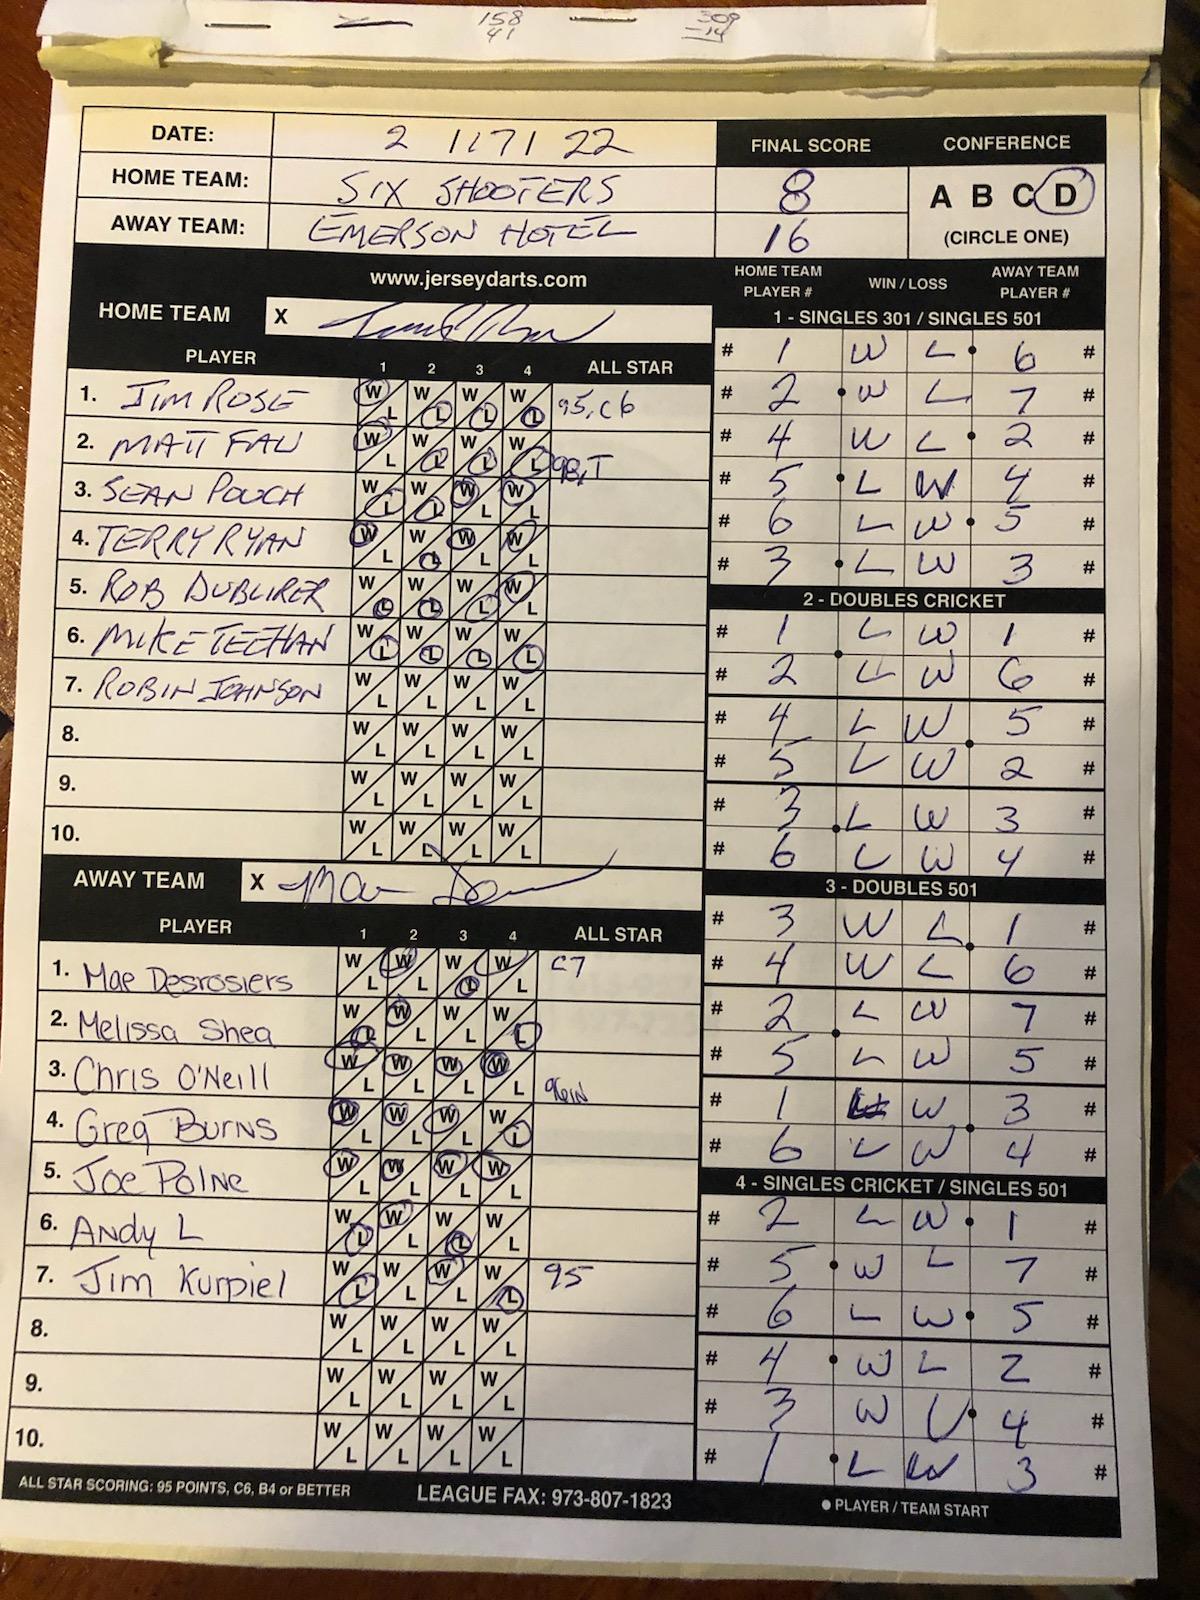 158 309
41 -14
DATE: 2 1171 22 FINAL SCORE CONFERENCE
HOME TEAM: SIX SHOOTERS 8 A B C D
AWAY TEAM: EMERSON HOTEL 16 (CIRCLE ONE)
www.jerseydarts.com HOME TEAM PLAYER # WIN / LOSS AWAY TEAM PLAYER #
HOME TEAM X
PLAYER 1 2 3 4 ALL STAR
1. JIM ROSE W L W L W L W L 95, C6
2. MATT FAU W L W L W L W L
3. SEAN POUCH W L W L W L W L
4. TERRY RYAN W L W L W L W L
5. ROB DUBLIRER W L W L W L W L
6. MIKE TEEHAN W L W L W L W L
7. ROBIN JOHNSON W L W L W L W L
8. W L W L W L W L
9. W L W L W L W L
10. W L W L W L W L
AWAY TEAM X
PLAYER 1 2 3 4 ALL STAR
1. Mae Desrosiers W L W L W L W L C7
2. Melissa Shea W L W L W L W L
3. Chris O'Neill W L W L W L W L 96IN
4. Greg Burns W L W L W L W L
5. Joe Polne W L W L W L W L
6. Andy L W L W L W L W L
7. Jim Kurpiel W L W L W L W L 95
8. W L W L W L W L
9. W L W L W L W L
10. W L W L W L W L
ALL STAR SCORING: 95 POINTS, C6, B4 or BETTER LEAGUE FAX: 973-807-1823
1 - SINGLES 301 / SINGLES 501
# 1 W L 6 #
# 2 W L 7 #
# 4 W L 2 #
# 5 L W 4 #
# 6 L W 5 #
# 3 L W 3 #
2 - DOUBLES CRICKET
# 1 L W 1 #
# 2 L W 6 #
# 4 L W 5 #
# 5 L W 2 #
# 3 L W 3 #
# 6 L W 4 #
3 - DOUBLES 501
# 3 W L 1 #
# 4 W L 6 #
# 2 L W 7 #
# 5 L W 5 #
# 1 W 3 #
# 6 L W 4 #
4 - SINGLES CRICKET / SINGLES 501
# 2 L W 1 #
# 5 W L 7 #
# 6 L W 5 #
# 4 W L 2 #
# 3 W L 4 #
# 1 L W 3 #
● PLAYER / TEAM START